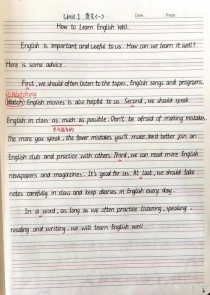 Unit 1 范文(一) Date. Page.
How to Learn English Well.
English is important and useful to us. How can we learn it well?
Here is some advice.
First, we should often listen to the tapes, English songs and programs.
Watching
Watch English movies is also helpful to us. Second, we should speak
English in class as much as possible. Don't be afraid of making mistakes.
The more you speak, the fewer mistakes you'll make. We'd better join an
English club and practice with others. Third, we can read more English
newspapers and magazines. It's good for us. At last, we should take
notes carefully in class and keep diaries in English every day.
In a word, as long as we often practice listening, speaking,
reading and writing, we will learn English well.